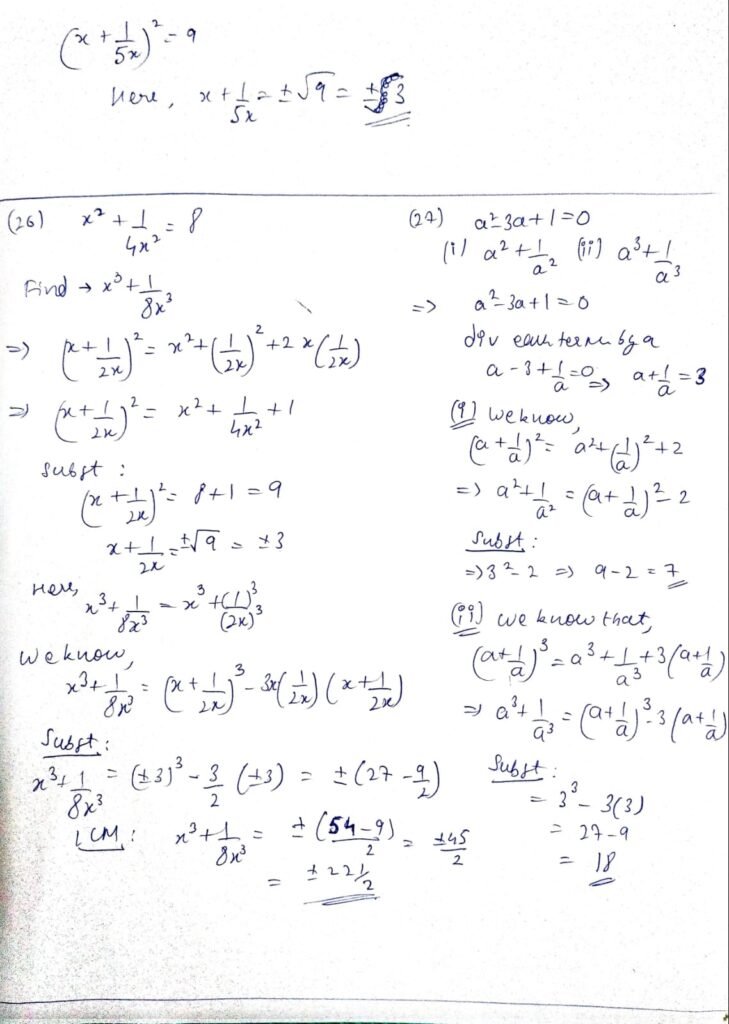 (x + 1/5x)² = 9
Here, x + 1/5x = ±√9 = ±3
(26) x² + 1/4x² = 8
Find → x³ + 1/8x³
=> (x + 1/2x)² = x² + (1/2x)² + 2 x (1/2x)
=> (x + 1/2x)² = x² + 1/4x² + 1
Subst :
(x + 1/2x)² = 8 + 1 = 9
x + 1/2x = ±√9 = ±3
Here,
x³ + 1/8x³ = x³ + (1)³/(2x)³
We know,
x³ + 1/8x³ = (x + 1/2x)³ - 3x(1/2x)(x + 1/2x)
Subst :
x³ + 1/8x³ = (±3)³ - 3/2 (±3) = ±(27 - 9/2)
LCM : x³ + 1/8x³ = ±(54 - 9)/2 = ±45/2
= ±22 1/2
(27) a² - 3a + 1 = 0
(i) a² + 1/a² (ii) a³ + 1/a³
=> a² - 3a + 1 = 0
div each term by a
a - 3 + 1/a = 0 => a + 1/a = 3
(i) We know,
(a + 1/a)² = a² + (1/a)² + 2
=> a² + 1/a² = (a + 1/a)² - 2
Subst :
=> 3² - 2 => 9 - 2 = 7
(ii) we know that,
(a + 1/a)³ = a³ + 1/a³ + 3(a + 1/a)
=> a³ + 1/a³ = (a + 1/a)³ - 3(a + 1/a)
Subst :
= 3³ - 3(3)
= 27 - 9
= 18